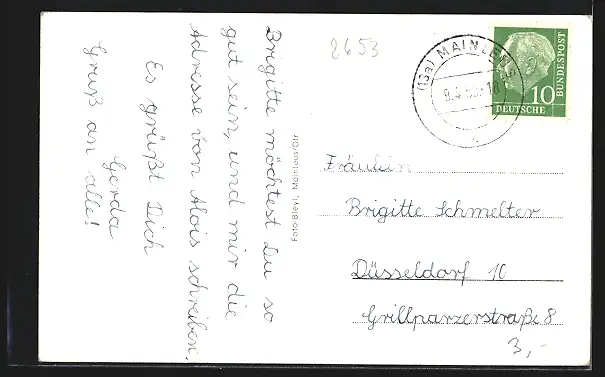 Brigitte möchtest Du so
gut sein, und mir die
Adresse von Alois schreiben.
Es grüßt Dich
Gerda
Gruß an alle!
2653
Foto Bleyl, Mainleus/Ofr
(13a) MAINLEUS
DEUTSCHE
BUNDESPOST
10
Fräulein
Brigitte Schmelter
Düsseldorf 10
Grillparzerstraße 8
3,-